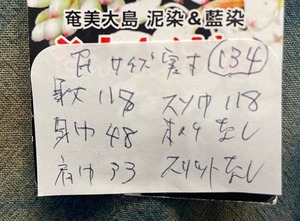 奄美大島 泥染&藍染
サイズ実寸 134
身丈 118 スソ巾 118
身巾 48 ポケなし
肩巾 33 スリットなし